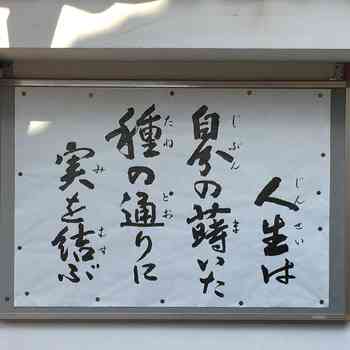 人生は
じんせい
自分の蒔いた
じぶん
ま
種の通りに
たね
とお
実を結ぶ
み
むす